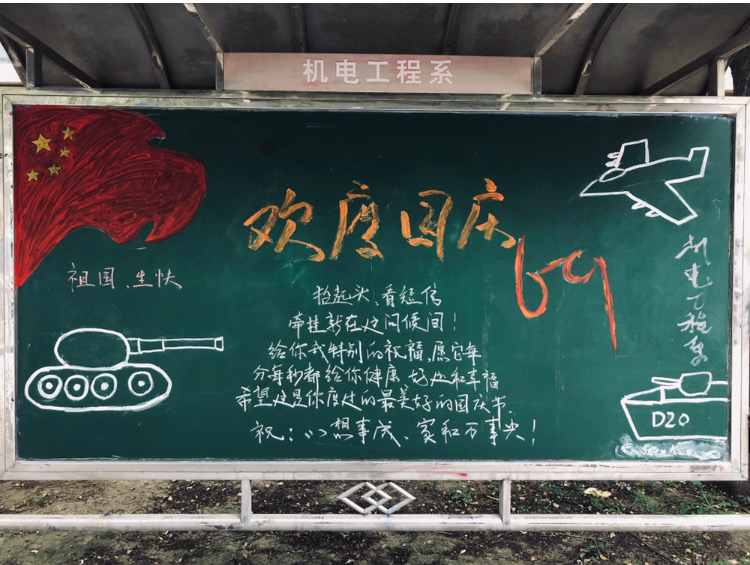 机电工程系
欢度国庆
69
祖国、生快
抬起头、看短信
牵挂就在这问候间！
给你我特别的祝福,愿它每
分每秒都给你健康、好处和幸福
希望这是你度过的最美好的国庆节.
祝：心想事成、家和万事兴！
机电工程系
D20